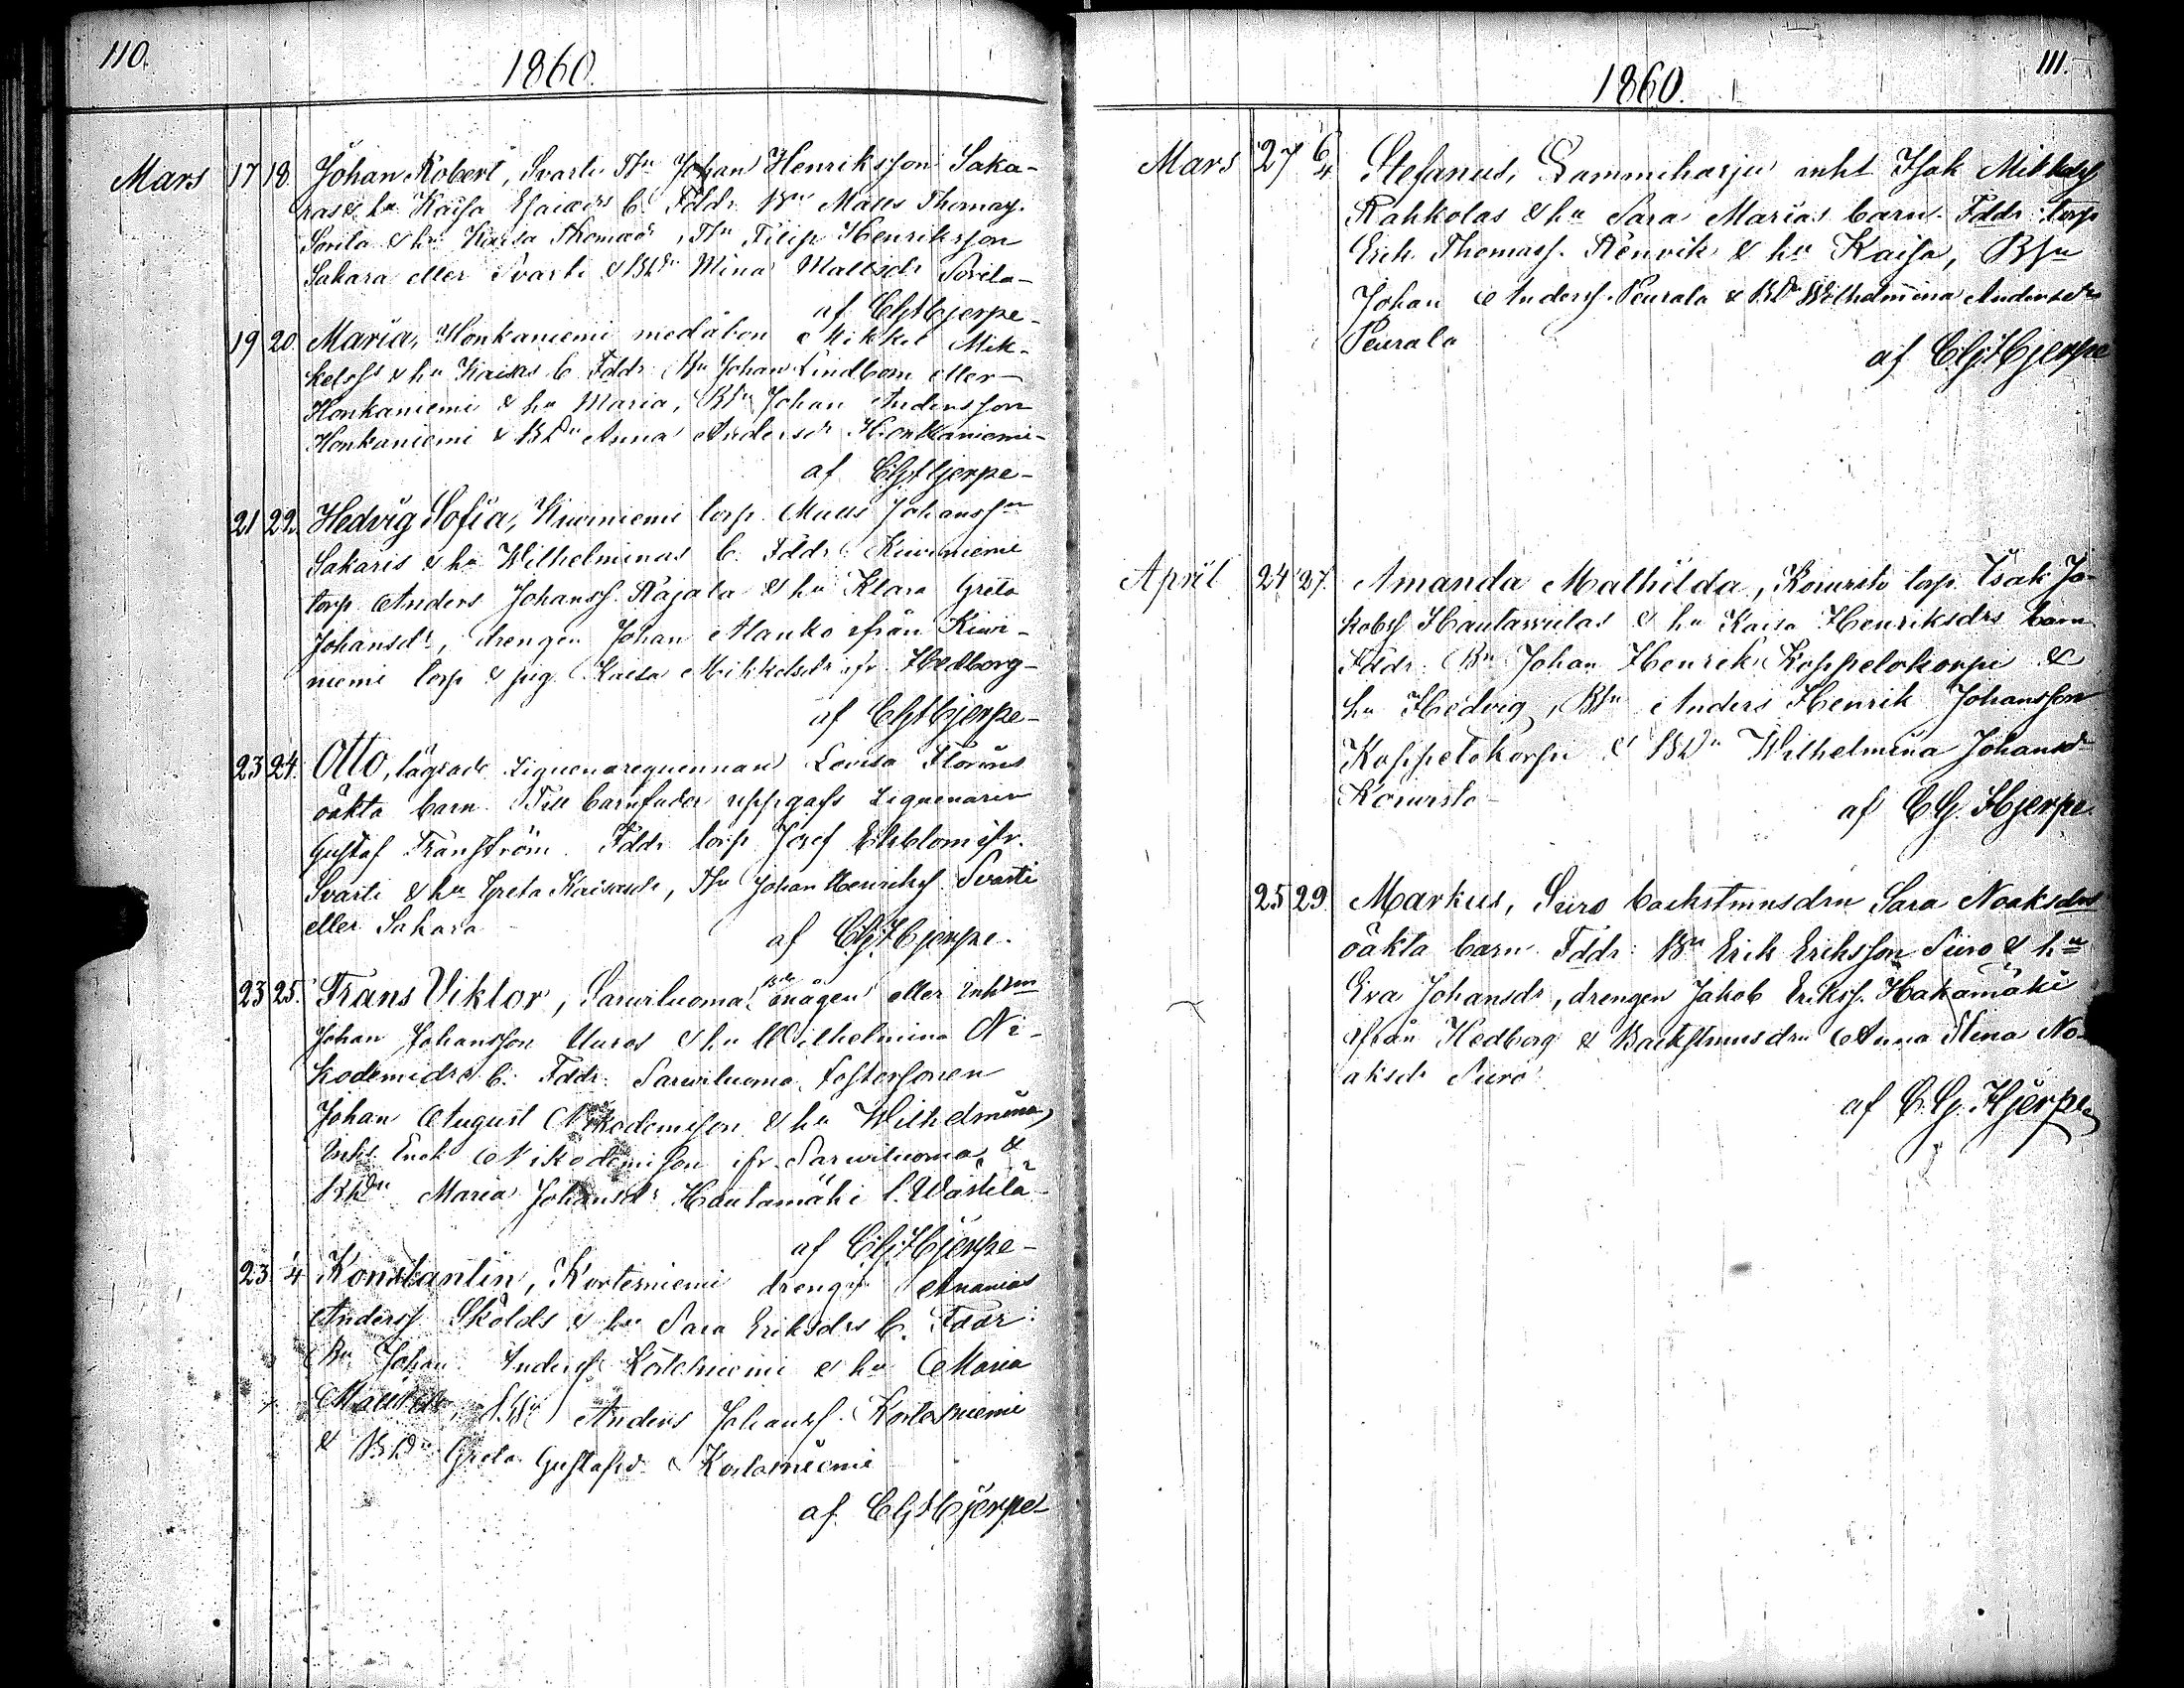 110.
1860.
Mars 17 18. Johan Robert, Svarti Thn Johan Henriksson Saka-
ras & hu Kaisa Esaiædrs b. Fddr Bn Matts Thomass.
Sorila & hu Kaisa Thomasdr, Thn Filip Henriksson
Sakara eller Svarti & BDn Mina Mattsdr Sorila-
af CGHjerpe-
19 20. Maria, Honkaniemi medåbon Mikkel Mik-
kelss & hu Kaisas b Fddr Johan Lindbom eller
Honkaniemi & hu Maria, Johan Andersson
Honkaniemi & BDn Anna Andersdr Honkaniemi-
af CGHjerpe-
21 22. Hedvig Sofia, Kiviniemi torp. Matts Johanss
Sakaris & hu Wilhelminas b. Fddr Kiviniemi
torp Anders Johanss. Rajala & hu Klara Greta
Johansdr, drengen Johan Alanko ifrån Kivi-
niemi torp & pig. Kaisa Mikkelsdr ifr. Hedborg-
af CGHjerpe-
23 24. Otto, lägrade Ziguenarequinnan Lovisa Florins
oäkta barn. Till barnfader uppgafs Ziguenaren
Gustaf Franström. Fddr torp Josef Ekblom ifr.
Svarti & hu Greta Kaisa, Thn Johan Henrikss Svarti
eller Sakara
af CGHjerpe.
23 25. Frans Viktor, Sarviluoma eller Inh
Johan Johansson Uuros & hu Wilhelmina Ni-
kodemidrs b. Fddr. Sarviluoma fostersonen
Johan August Nikodemison & hu Wilhelmina,
Inh. Erik Nikodemison ifr. Sarviluoma &
BDn Maria Johansdr Hautamäki l. Wästilä-
af CGHjerpe-
23 4 Konstantin, Kortesniemi dreng Ananias
Anderss Skölds & hu Sara Eriksdrs b. Fddr:
Bn Johan Anderss Kortesniemi & hu Maria
Anders Johanss. Kortesniemi
& BDn Greta Gustafsdr Kortesniemi
af CGHjerpe-
111.
1860.
Mars 27 6/4 Stefanus, Lammiharju inht Isak Mikkelss
Rahkolas & hu Sara Marias barn. Fddr: torp
Erik Thomass. Renvik & hu Kaisa, BSn
Johan Anderss. Peurala & BDn Wilhelmina Andersdr
Peurala
af CGHjerpe
April 24 27. Amanda Mathilda, Koivisto torp. Isak Ja-
kobss Hautaviitas & hu Kaisa Henriksdrs barn
Fddr. Bn Johan Henrik Koppelokorpi &
hu Hedvig, BSn Anders Henrik Johansson
Koppelokorpi & BDn Wilhelmina Johansdr
Koivisto
af CG. Hjerpe.
25 29. Markus, Siiro backstmnsdrn Sara Noaksdrs
oäkta barn. Fddr: Bn Erik Eriksson Siiro & hu
Eva Johansdr, drengen Jakob Erikss. Hakamäki
ifrån Hedborg & Backstmnsdrn Anna Stina No-
aksdr Siiro
af C.G. Hjerpe